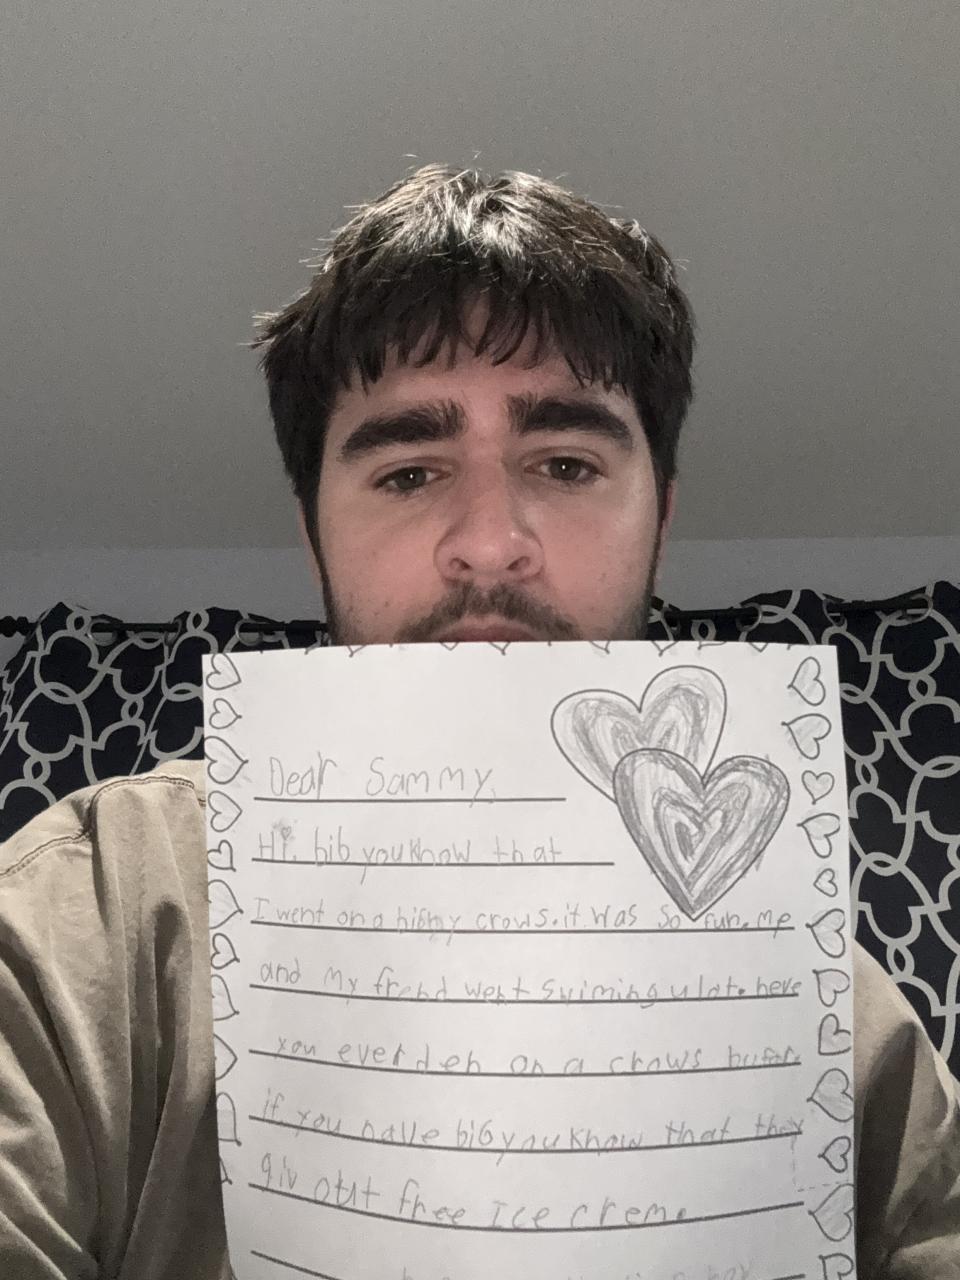 Dear Sammy,
Hi, bib you know that
I went on a crows. it was so fun. me
and my frend went swiming ulot. heve
you ever deh on a crows
if you have bib you know that they
giv out free Ice crem.